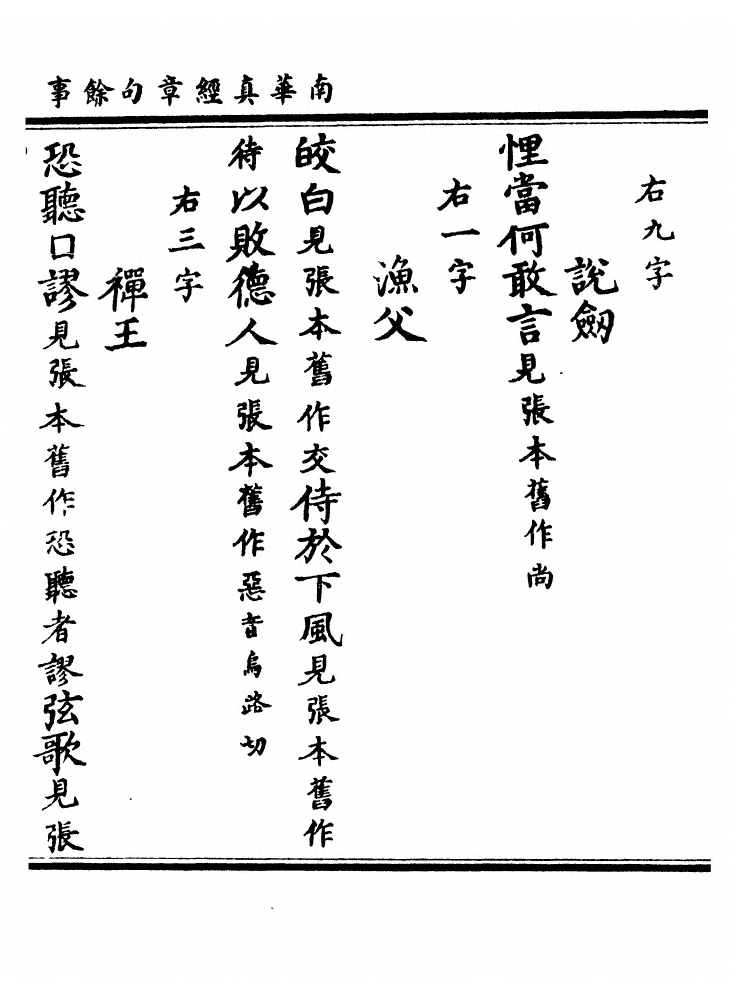 南華真經章句餘事
右九字
說劒
悝當何敢言見張本舊作尚
右一字
漁父
皎白見張本舊作交侍於下風見張本舊作
待以敗德人見張本舊作惡音烏路切
右三字
禪王
恐聽口謬見張本舊作恐聽者謬弦歌見張